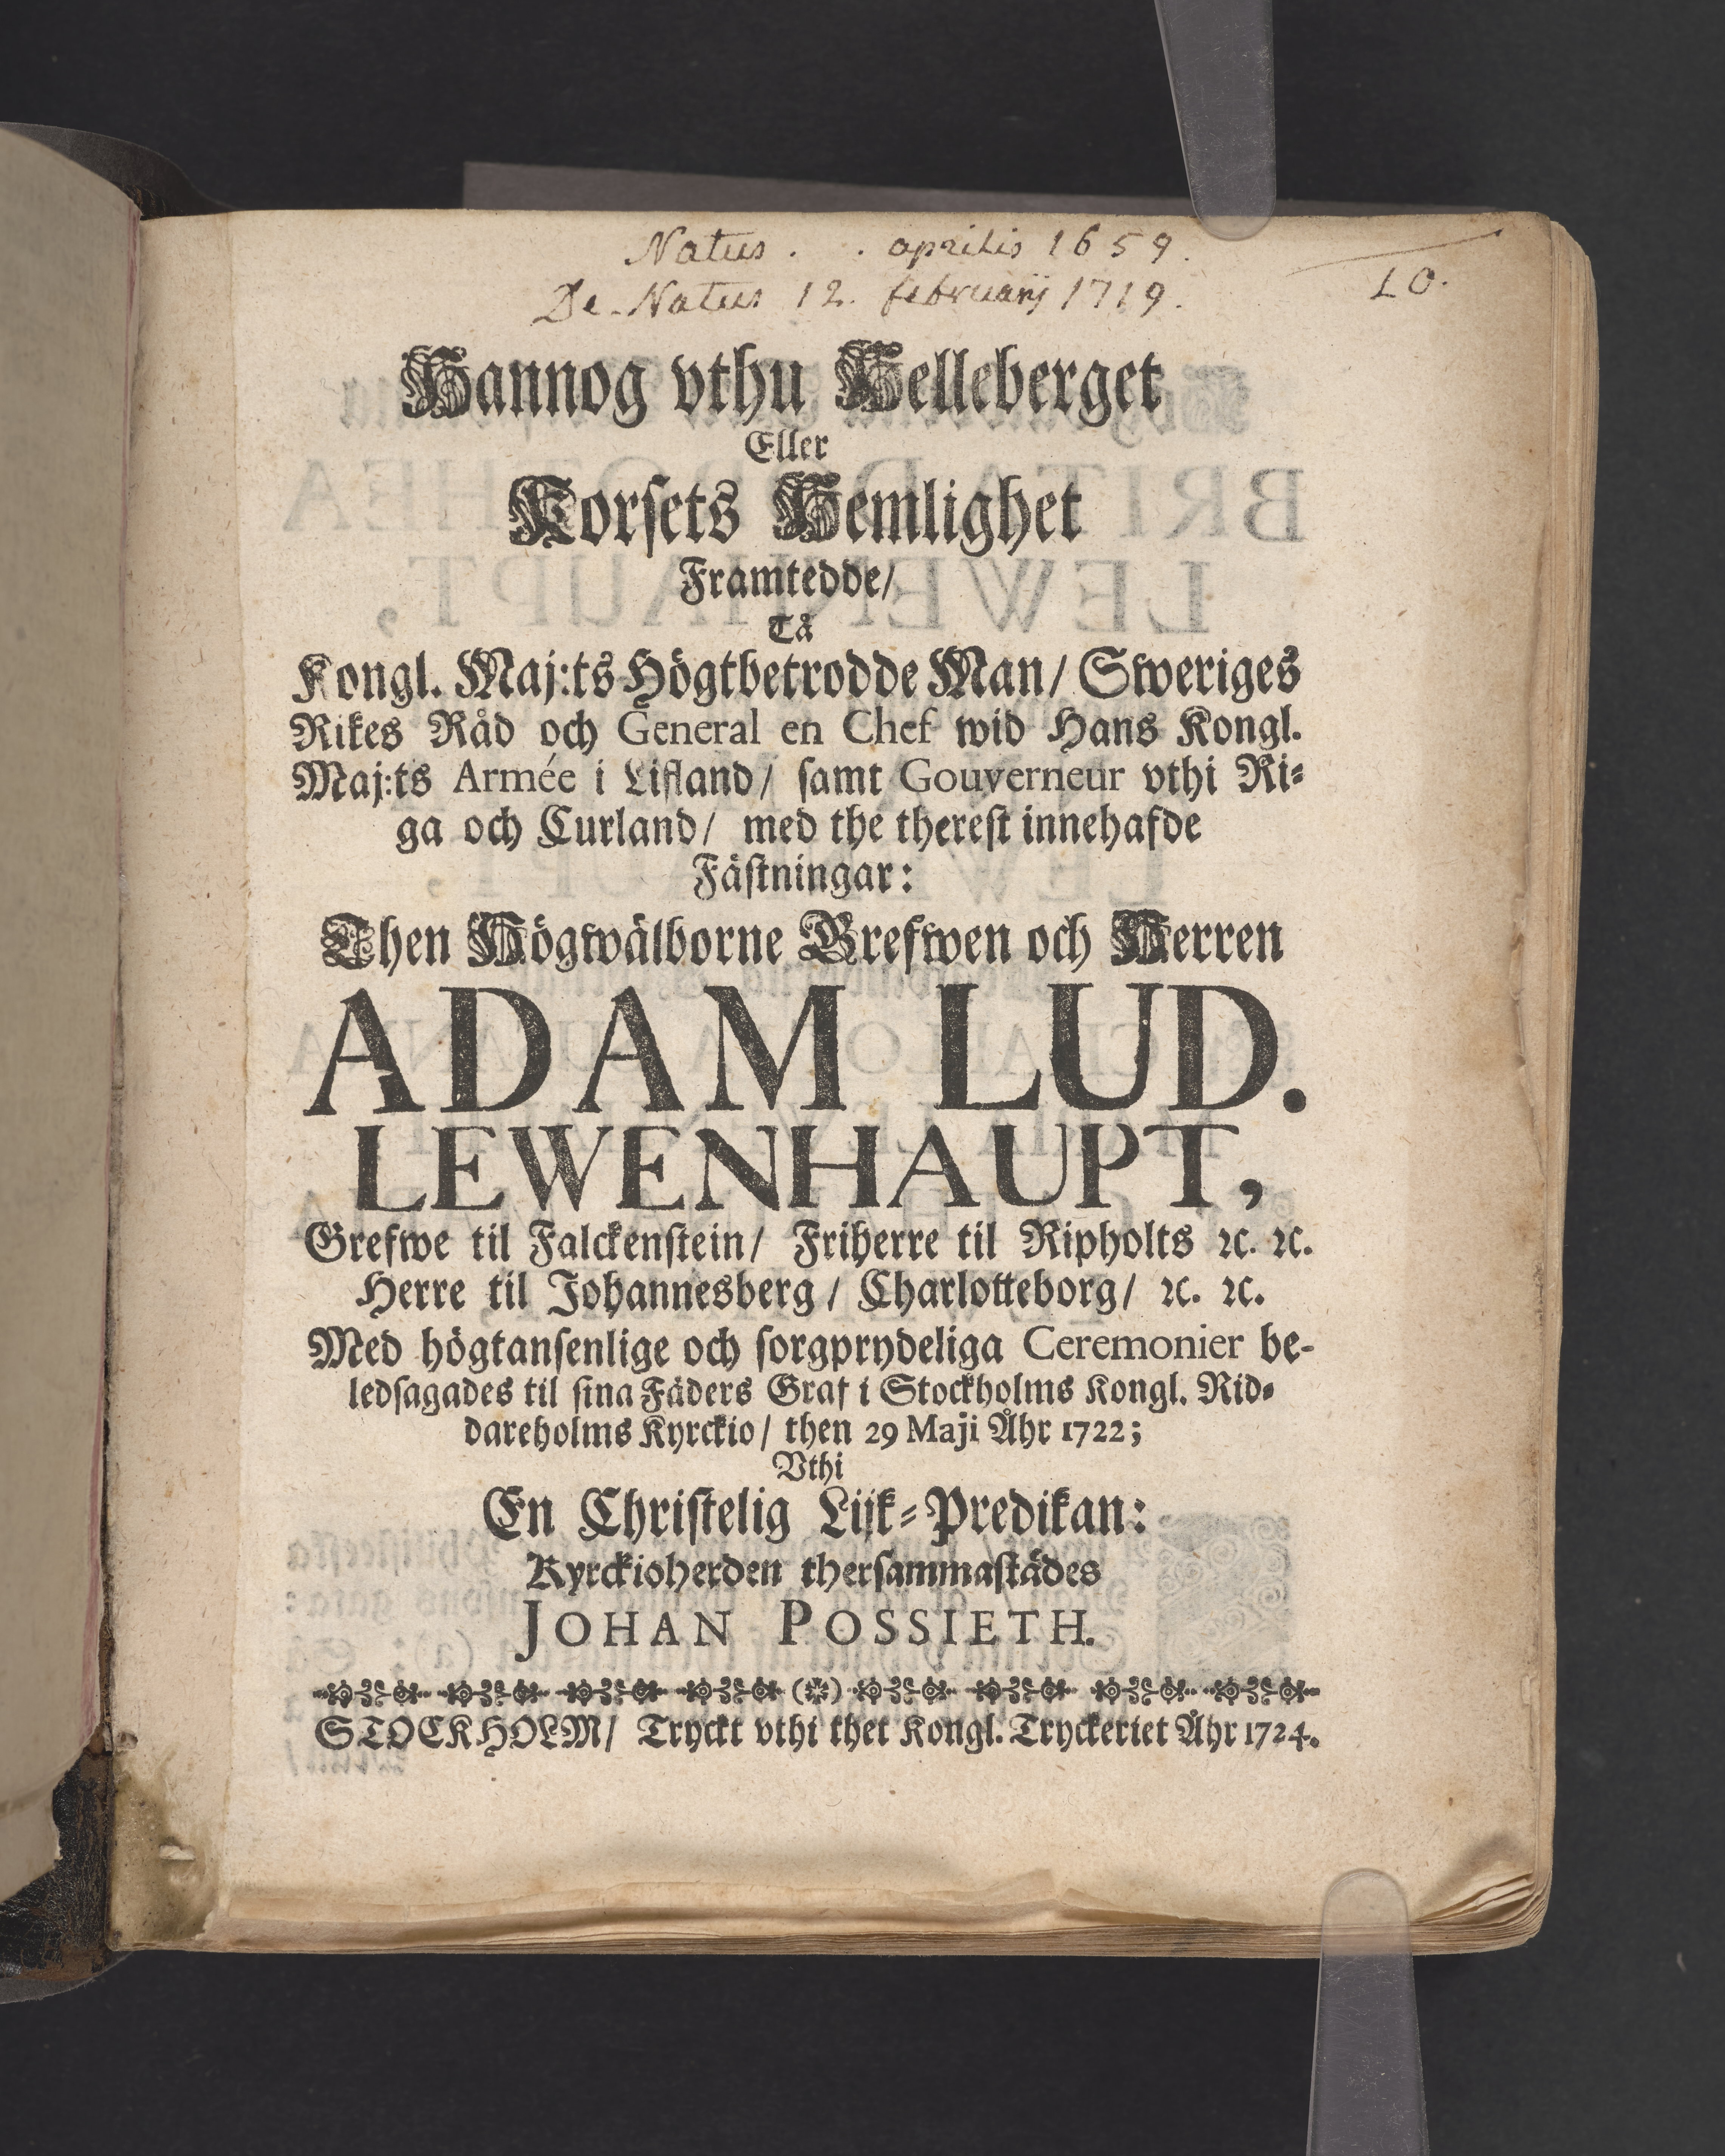 Natus . . aprilis 1659.
De-Natus 12. februarij 1719.
10.
Hannog vthu Helleberget
Eller
Korsets Hemlighet
Framtedde/
Tå
Kongl. Maj:ts Högtbetrodde Man/ Sweriges
Rikes Råd och General en Chef wid Hans Kongl.
Maj:ts Armée i Lifland/ samt Gouverneur vthi Ri-
ga och Curland/ med the therest innehafde
Fästningar:
Then Högwälborne Grefwen och Herren
ADAM LUD.
LEWENHAUPT,
Grefwe til Falckenstein/ Friherre til Ripholts ꝛc. ꝛc.
Herre til Johannesberg/ Charlotteborg/ ꝛc. ꝛc.
Med högtansenlige och sorgprydeliga Ceremonier be-
ledsagades til sina Fäders Graf i Stockholms Kongl. Rid-
dareholms Kyrckio/ then 29 Maji Åhr 1722;
Vthi
En Christelig Lijk-Predikan:
Kyrckioherden thersammastädes
JOHAN POSSIETH.
STOCKHOLM/ Tryckt vthi thet Kongl. Tryckeriet Åhr 1724.